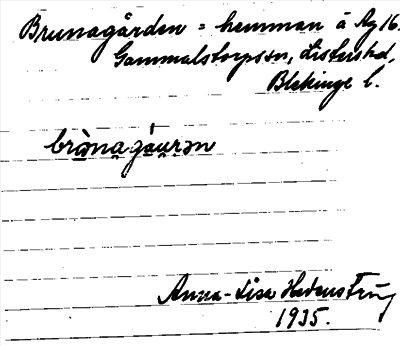 Brunagården = hemman å Ag 16.
Gammalstorpssn, Listershd,
Blekinge l.
brὰ̤na̤gá̤u̯ṛən
Anna-Lisa Hedenström
1935.